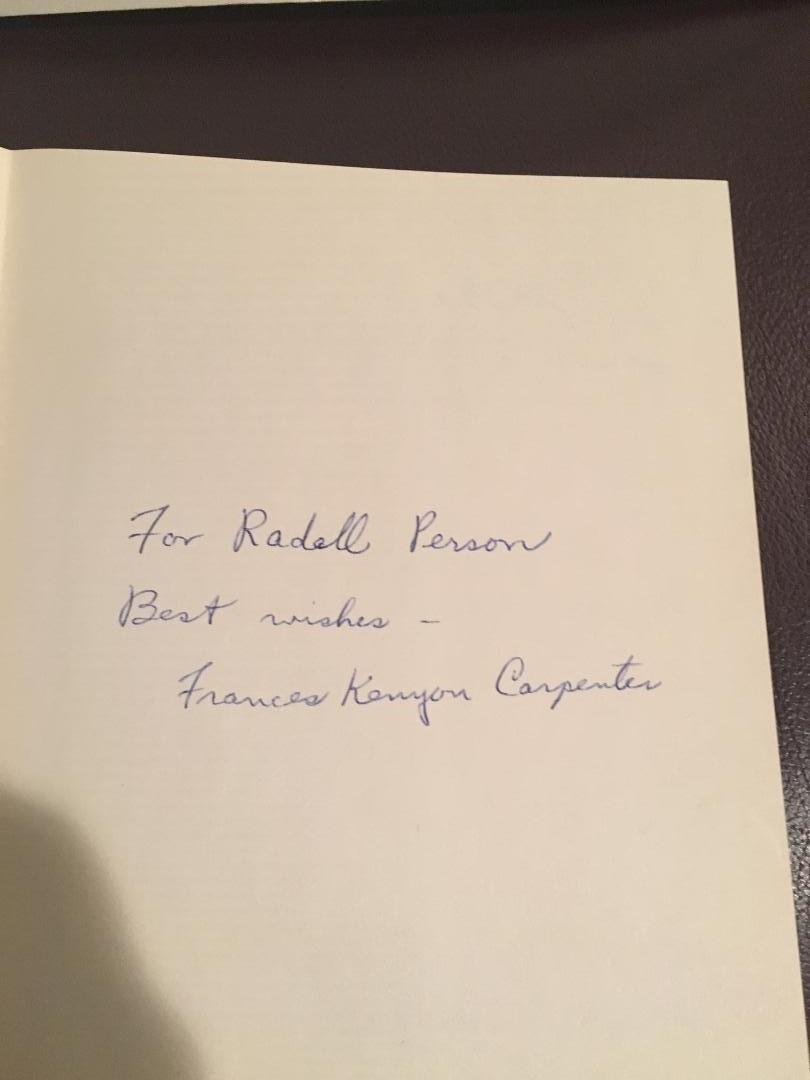 For Radell Person
Best wishes –
Frances Kenyon Carpenter